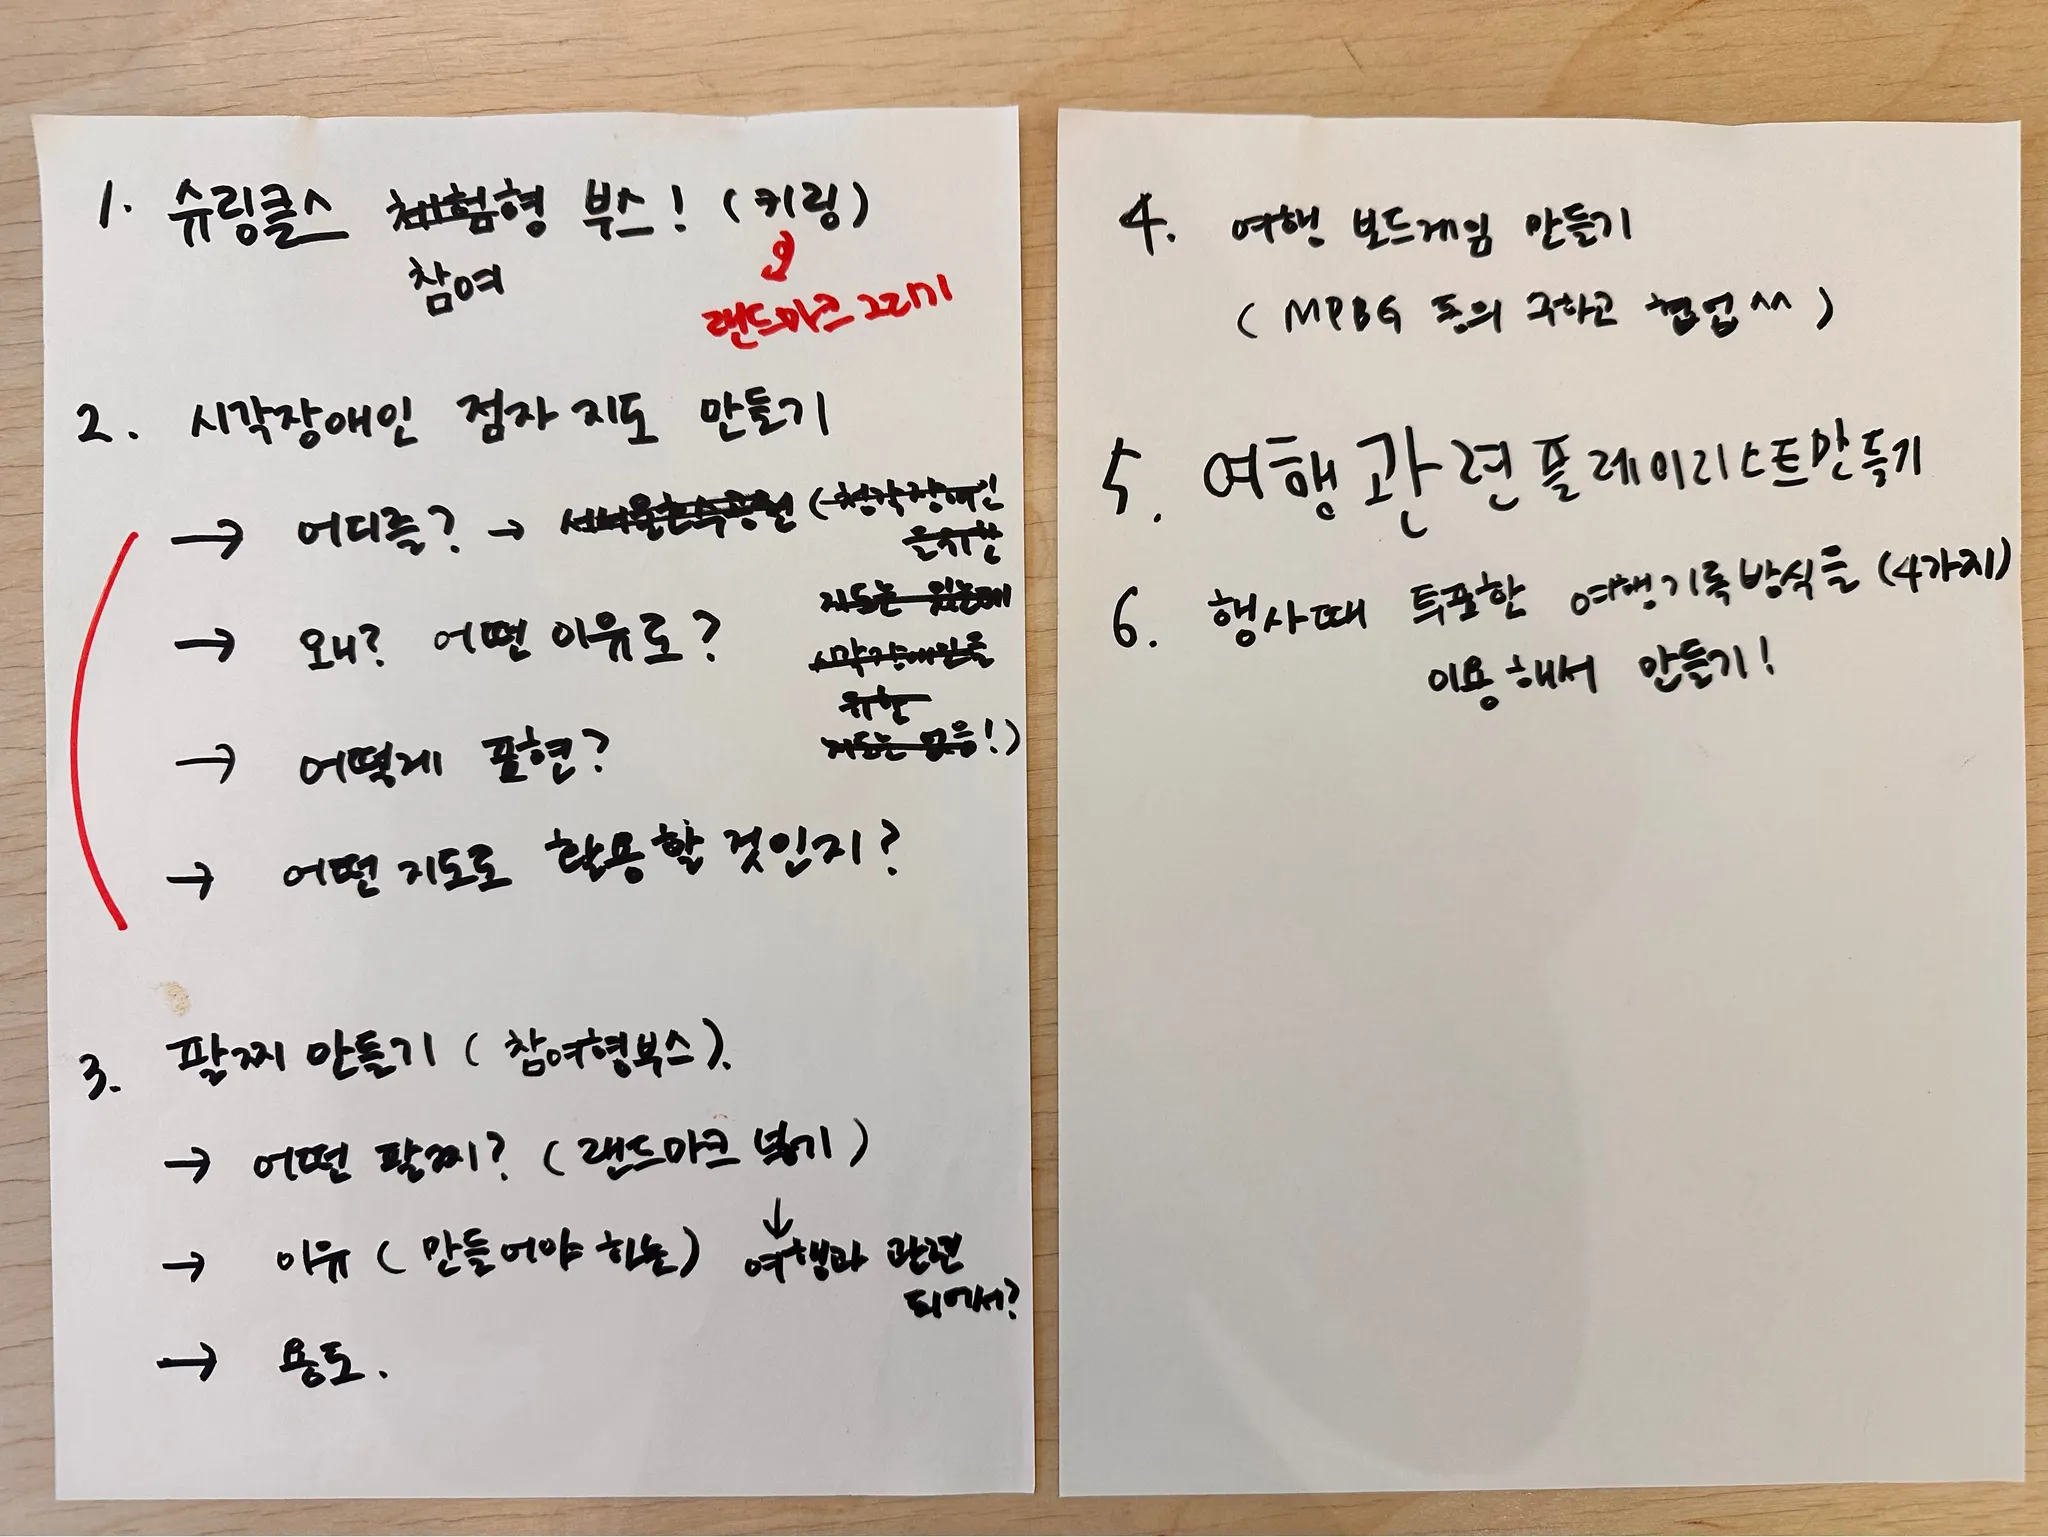 1. 슈링클스 체험형 부스! (키링)
참여
랜드마크 그리기
2. 시각장애인 점자 지도 만들기
→ 어디를? → 서서울호수공원 (청각장애인
을위한
지도는 있는데
시각장애인을
위한
지도는 없음!)
→ 왜? 어떤 이유로?
→ 어떻게 표현?
→ 어떤 지도로 활용할 것인지?
3. 팔찌 만들기 (참여형부스).
→ 어떤 팔찌? (랜드마크 넣기)
→ 이유 (만들어야 하는) ↓ 여행과 관련
되어서?
→ 용도.
4. 여행 보드게임 만들기
(MPBG 동의 구하고 협업^^)
5. 여행관련플레이리스트만들기
6. 행사때 투표한 여행기록방식을 (4가지)
이용해서 만들기!